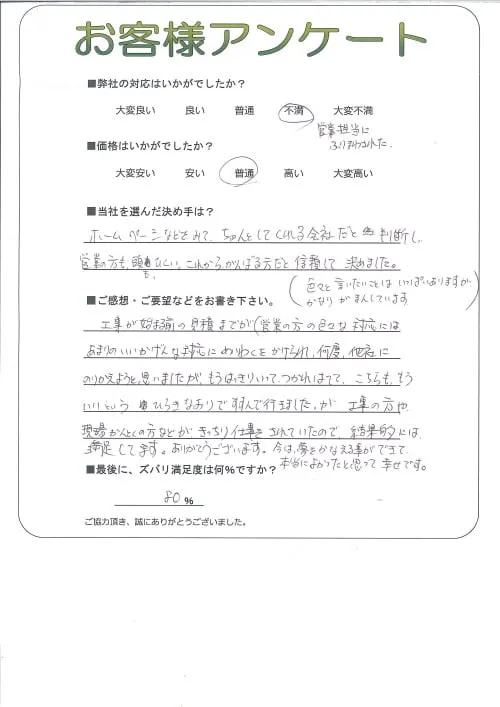 お客様アンケート
■弊社の対応はいかがでしたか？
大変良い 良い 普通 不満 大変不満
営業担当に
ふりまわされた.
■価格はいかがでしたか？
大変安い 安い 普通 高い 大変高い
■当社を選んだ決め手は？
ホームページなどをみて、ちゃんとしてくれる会社だと判断し、
営業の方も、頭もひくい、これからがんばる方だと信頼して決めました。
(色々と言いたいことはいっぱいありますが、
かなりがまんしています)
■ご感想・ご要望などをお書き下さい。
工事が始まる前の見積までが(営業の方の色々な対応には
あまりのいいかげんな対応にめいわくをかけられ、何度、他社に
のりかえようと思いましたが、もうはっきりいって、つかれはてて、こちらも、もう
いいという ひらきなおりで すすんで行きました。が 工事の方や
現場かんとくの方などが、きっちり仕事をされていたので、結果的には、
満足してます。ありがとうございます。今は、夢をかなえる事ができて、
本当によかったと思って幸せです。
■最後に、ズバリ満足度は何％ですか？
80 %
ご協力頂き、誠にありがとうございました。